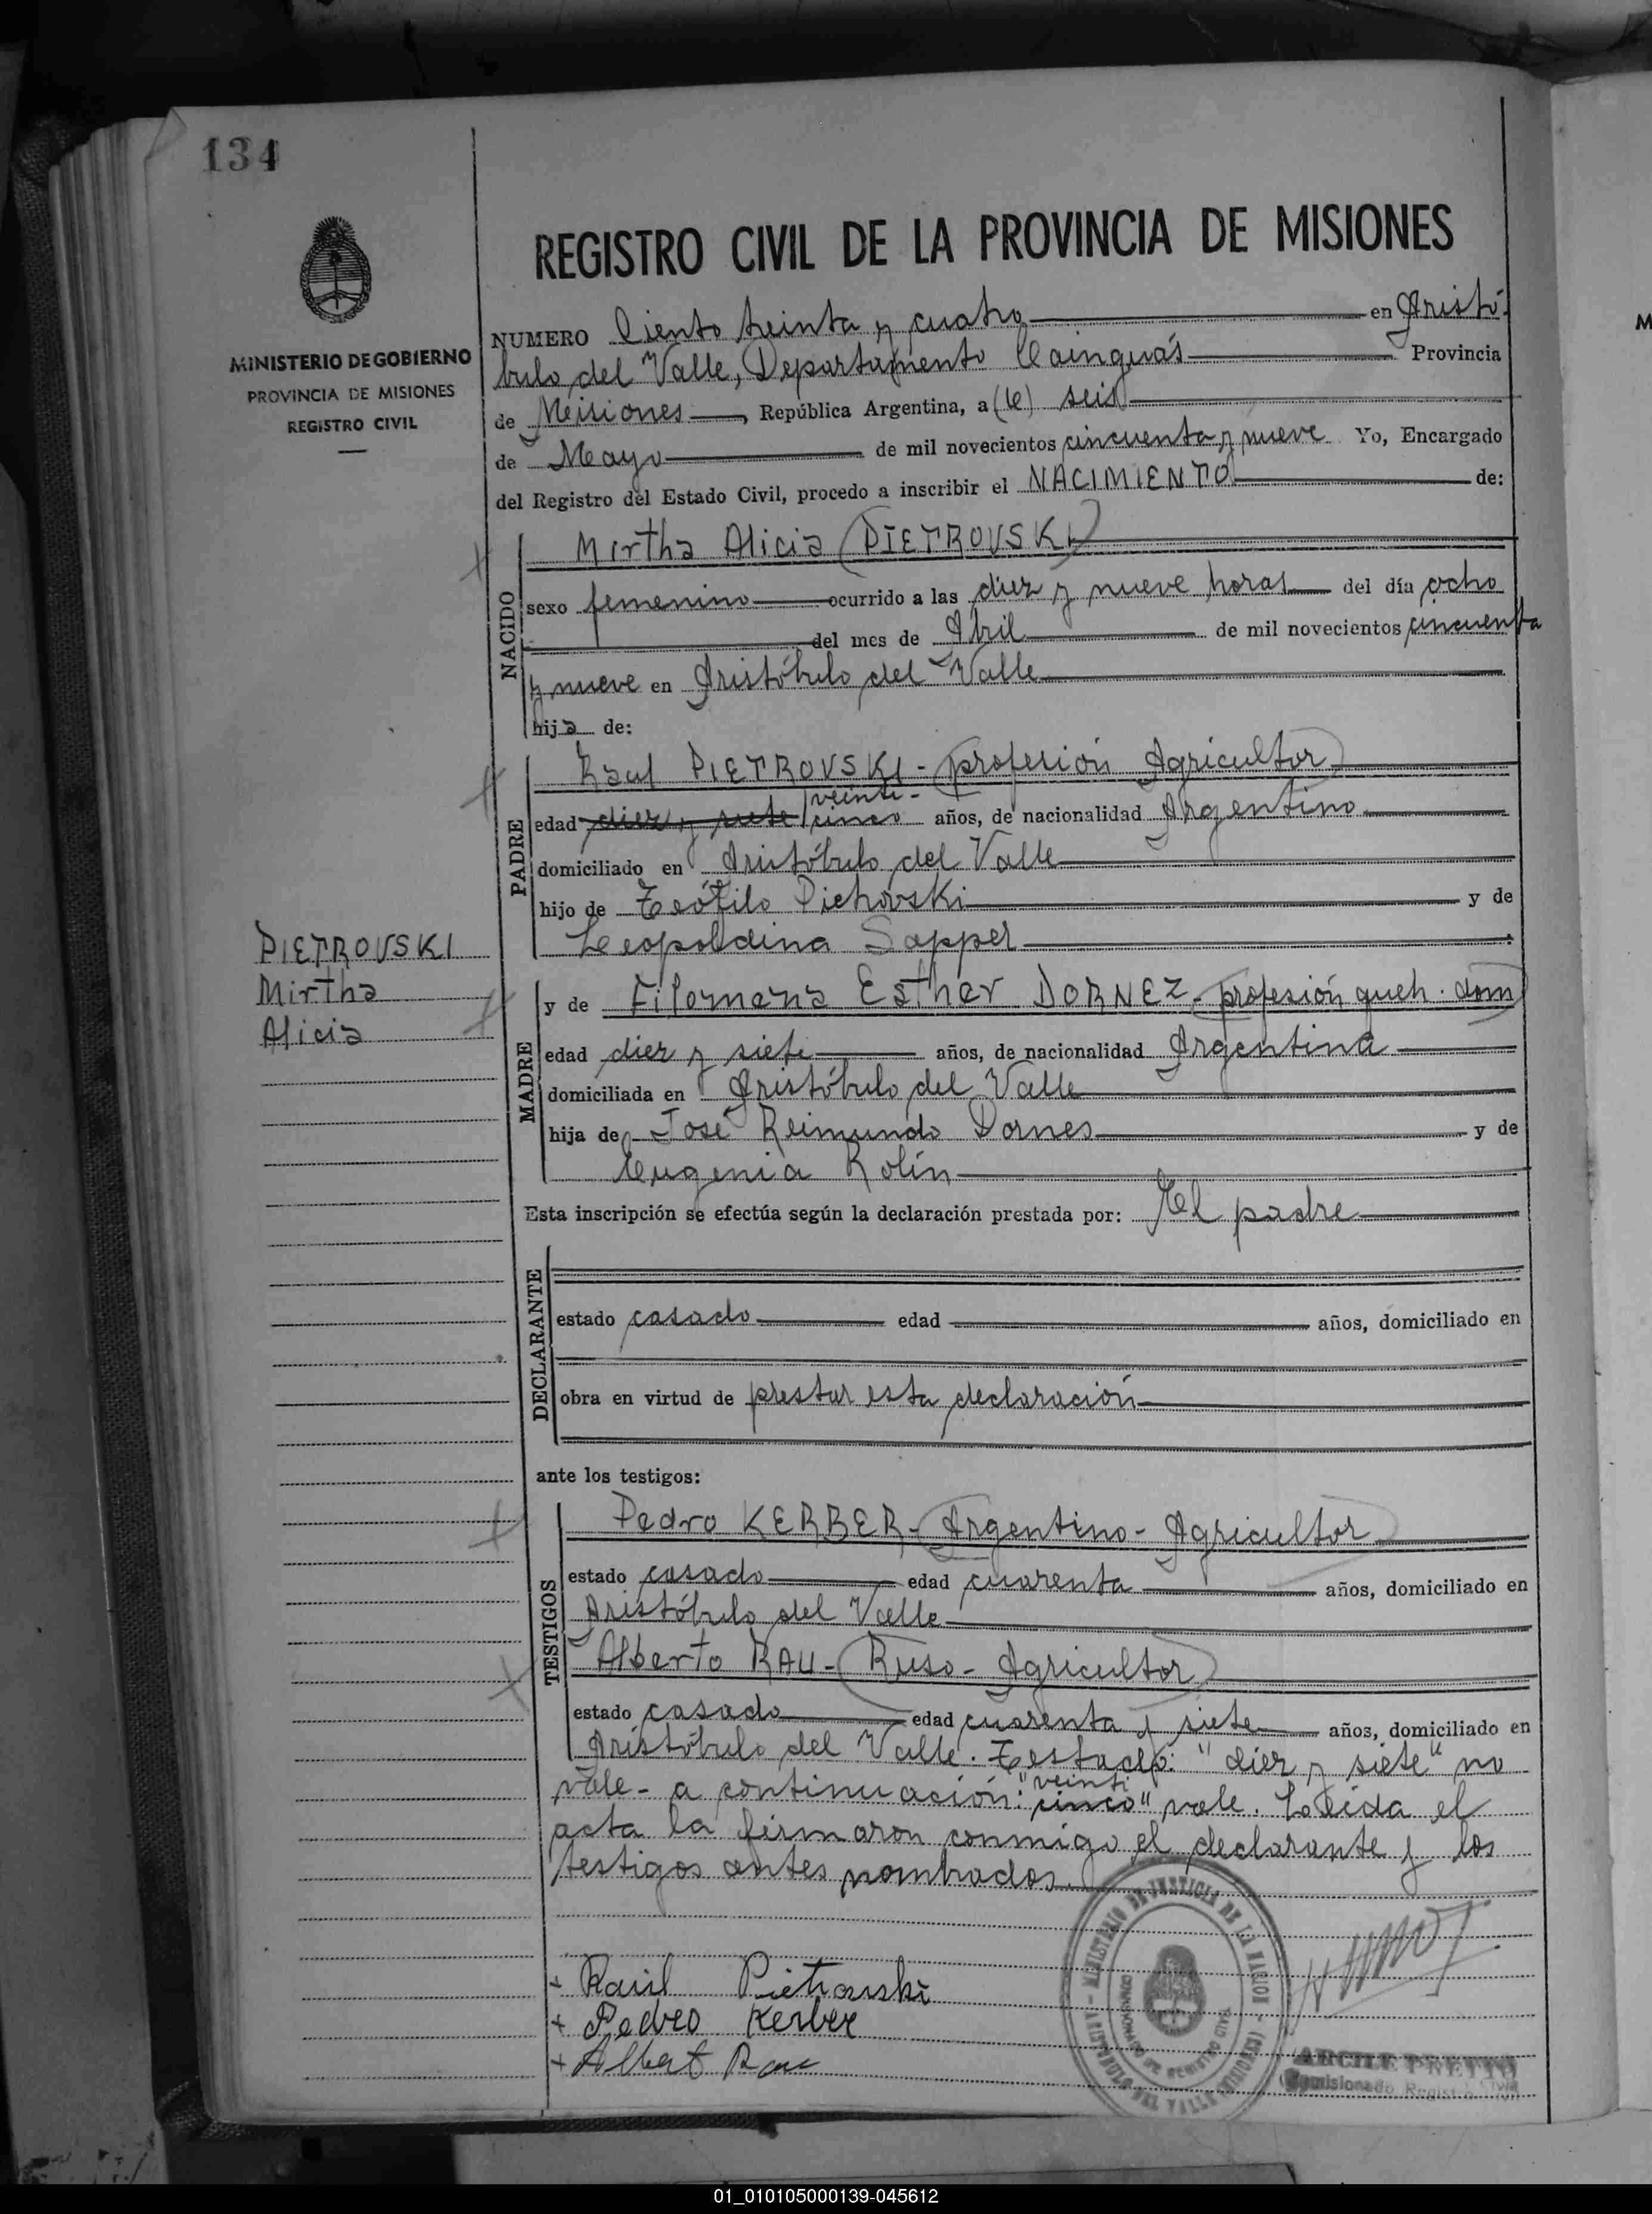 134
REGISTRO CIVIL DE LA PROVINCIA DE MISIONES
MINISTERIO DE GOBIERNO
PROVINCIA DE MISIONES
REGISTRO CIVIL
NUMERO Ciento treinta y cuatro en Aristó-
bulo del Valle, Departamento Cainguás Provincia
de Misiones, República Argentina, a (6) seis
de Mayo de mil novecientos cincuenta y nueve Yo, Encargado
del Registro del Estado Civil, procedo a inscribir el NACIMIENTO de:
NACIDO
Mirtha Alicia (PIETROVSKI)
sexo femenino ocurrido a las diez y nueve horas del día ocho
del mes de Abril de mil novecientos cincuenta
y nueve en Aristóbulo del Valle
hija de:
PADRE
Raul PIETROVSKI - profesión Agricultor
veinti-
edad diez y siete cinco años, de nacionalidad Argentino
domiciliado en Aristóbulo del Valle
hijo de Teófilo Pietrovski y de
Leopoldina Sapper
PIETROVSKI
Mirtha
Alicia
MADRE
y de Filomena Esther DORNEZ - profesión queh. dom
edad diez y siete años, de nacionalidad Argentina
domiciliada en Aristóbulo del Valle
hija de José Reimundo Dornes y de
Eugenia Rolín
Esta inscripción se efectúa según la declaración prestada por: El padre
DECLARANTE
estado casado edad años, domiciliado en
obra en virtud de prestar esta declaración
ante los testigos:
TESTIGOS
Pedro KERBER - Argentino - Agricultor
estado casado edad cuarenta años, domiciliado en
Aristóbulo del Valle
Alberto RAU - (Ruso - Agricultor)
estado casado edad cuarenta y siete años, domiciliado en
Aristóbulo del Valle. Testado: "diez y siete" no
vale - a continuación: "veinti cinco" vale. Leída el
acta la firmaron conmigo el declarante y los
testigos antes nombrados.
+ Raúl Pietrovski
+ Pedro Kerber
+ Albert Rau
MINISTERIO DE JUSTICIA DE LA NACION
ARISTOBULO DEL VALLE (MISIONES)
ARCILE PRETTO
Comisionado Registro Civil
01_010105000139-045612